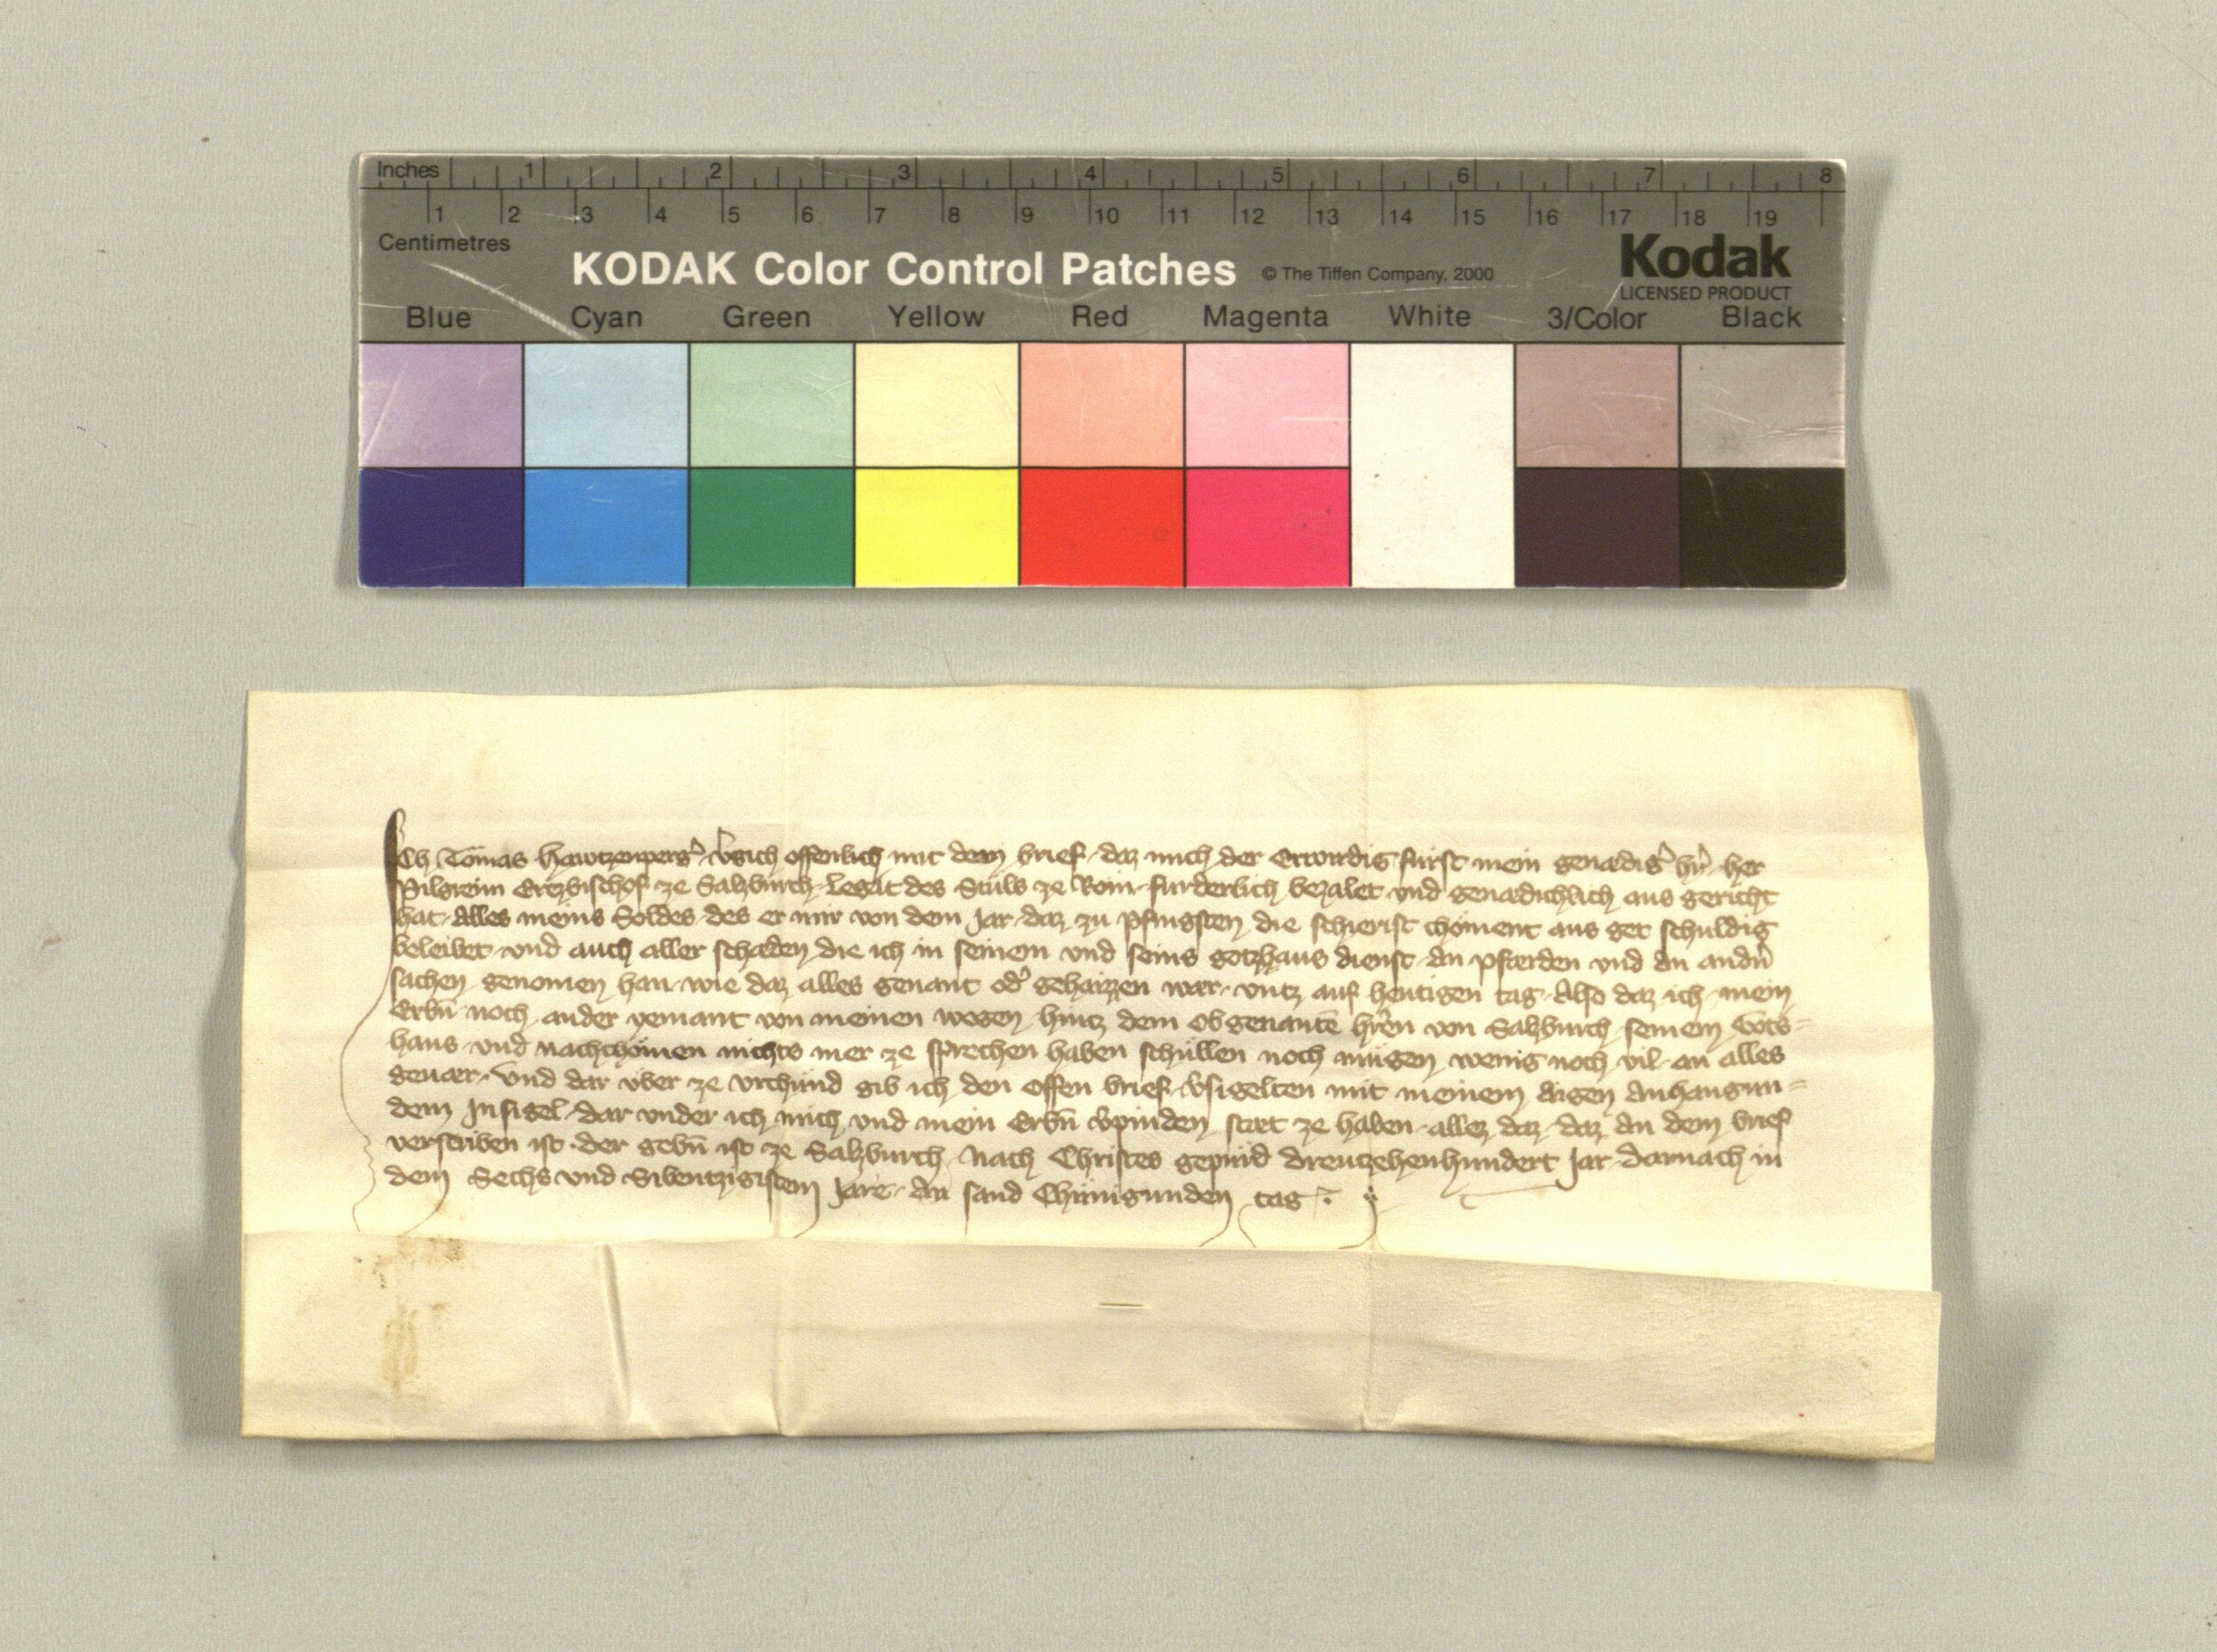 Inches 1 2 3 4 5 6 7 8
1 2 3 4 5 6 7 8 9 10 11 12 13 14 15 16 17 18 19
Centimetres
KODAK Color Control Patches © The Tiffen Company, 2000 Kodak
LICENSED PRODUCT
Blue Cyan Green Yellow Red Magenta White 3/Color Black
Ich Tomas v̾gich offenlich mit dem brief daz mich der Erwirdig fürst mein genædig̾ hr̃ her
Pilgreim Ertzbischof ze Salzburch Legat des Stuls ze Rom furderlich bezalet vnd genædichlich aus gericht
hat Alles meins Soldes des er mir von dem Jar daz zu pfingsten die schierist choment aus get schuldig
beleibet vnd auch aller schæden die ich in seinem vnd seins gotzhaus dienst an pfærden vnd an andn̾
sachen genomen han wie daz alles genant od̾ gehaizzen wær vntz auf heutigen tag Also daz ich mein
Erbn̄ noch ander yemant von meinen wegen hintz dem obgenantē hr̃en von Salzburch seinem Gots=
haus vnd nachchomen nichts mer ze sprechen haben schullen noch mügen wenig noch vil an alles
geuær Vnd dar vber ze vrchund gib ich den offen brief v̾sigelten mit meinem aigen Anhangun=
dem Insigel dar vnder ich mich vnd mein Erbn̄ v̾pinden stæt ze haben allez daz daz an dem brief
verscriben ist der gebn̄ ist ze Salzburch Nach Christes gepurd dreutzehenhundert Jar darnach in
dem Sechs vnd Sibentzigistem Jare An sand Chunigunden tag